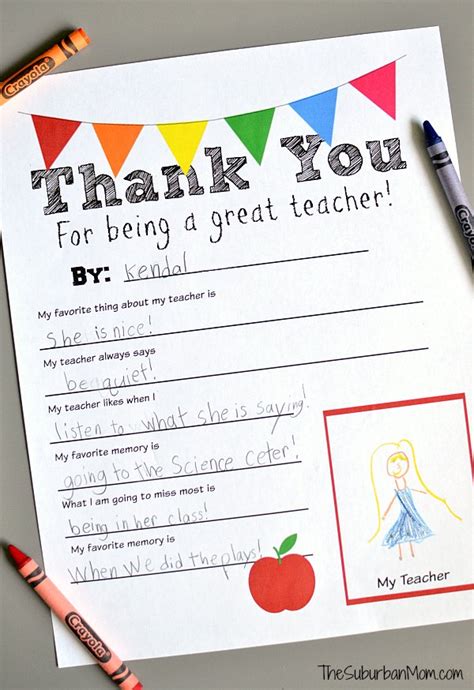 Crayola
Thank You
For being a great teacher!
By: Kendal
My favorite thing about my teacher is
She is nice!
My teacher always says
be quiet!
My teacher likes when I
listen to what she is saying!
My favorite memory is
going to the Science Ceter!
What I am going to miss most is
being in her class!
My favorite memory is
When We did the plays!
My Teacher
Crayola
Crayola
TheSuburbanMom.com